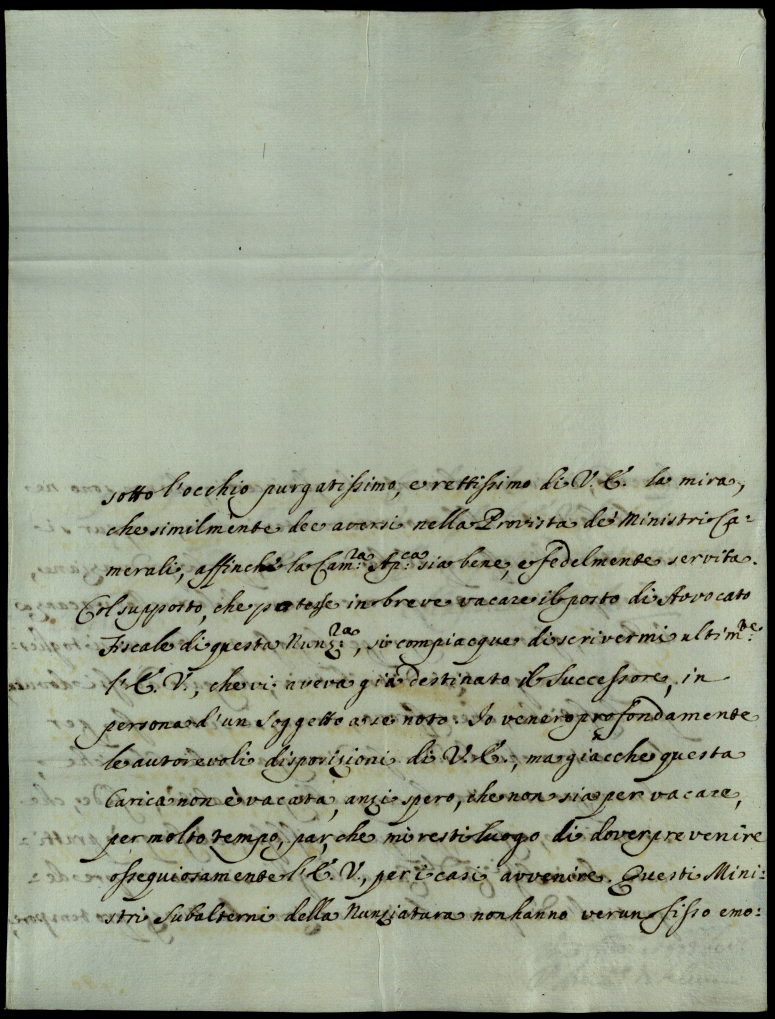 sotto l'occhio purgatissimo, e rettissimo di V. E. la mira,
che similmente dee aversi nella Provista de' Ministri Ca=
merali, affinchè la Cam:ra Ap:ca sia bene, e fedelmente servita.
Col supposto, che potesse in breve vacare il posto di Avvocato
Fiscale di questa Nunz:ra, si compiacque di scrivermi ultim:te
l'E. V., che vi aveva già destinato il Successore, in
persona d'un Soggetto a se noto. Io venero profondamente
le autorevoli disposizioni di V. E., ma giacche questa
Carica non è vacata, anzi spero, che non sia per vacare,
per molto tempo, par, che mi resti luogo di dover prevenire
ossequiosamente l'E. V., per i casi avvenire. Questi Mini=
stri Subalterni della Nunziatura non hanno verun fisso emo=